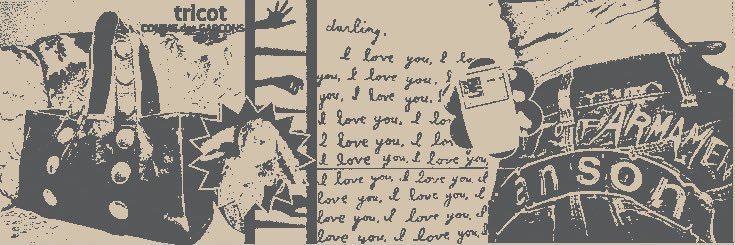 tricot
COMME des GARÇONS
darling,
I love you, I lo
you, I love you, I
you, I love you, I
I love you, I lo
I love you, I lo
I love you, I love you,
I love you, I love you, I
love you, I love you, I
love you, I love you, I
love you, I love you, I
anson